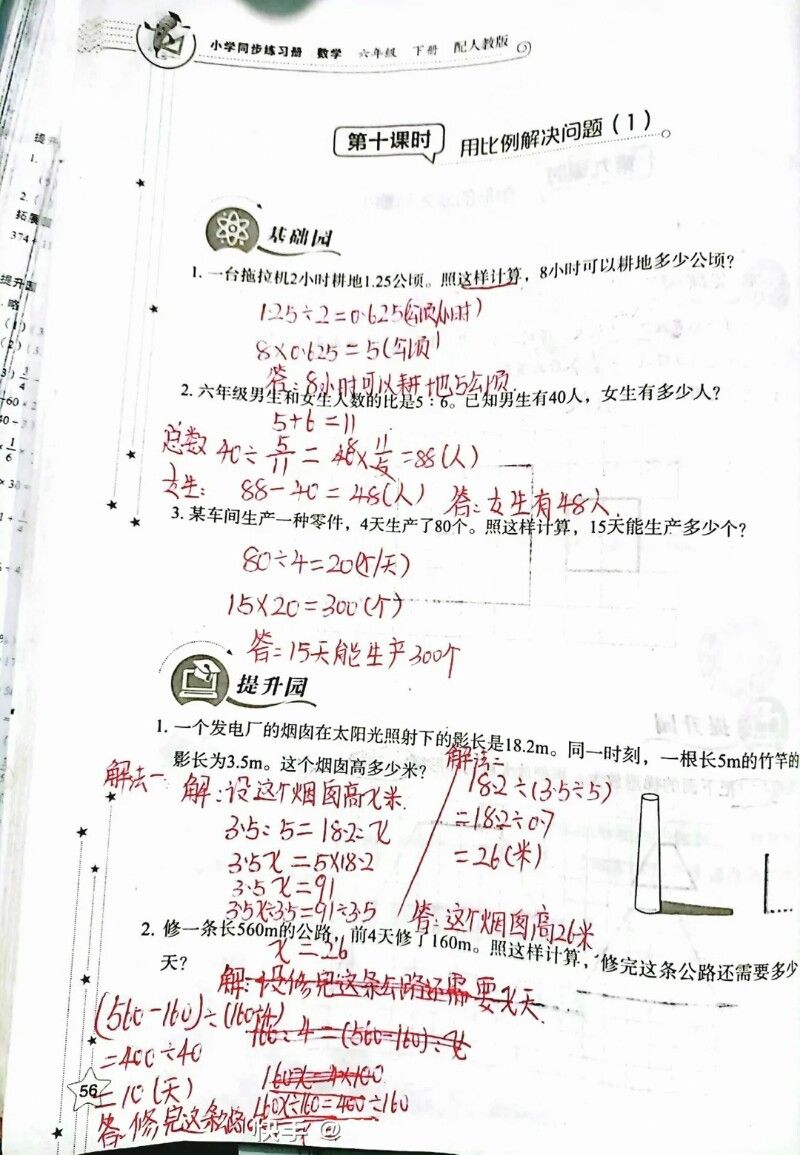 小学同步练习册 数学 六年级 下册 配人教版
第十课时 用比例解决问题(1)
基础园
1. 一台拖拉机2小时耕地1.25公顷。照这样计算，8小时可以耕地多少公顷？
1.25÷2=0.625(公顷/小时)
8×0.625=5(公顷)
答：8小时可以耕地5公顷.
2. 六年级男生和女生人数的比是5：6。已知男生有40人，女生有多少人？
5+6=11
总数 40÷5/11=40×11/5=88(人)
女生： 88-40=48(人) 答：女生有48人.
3. 某车间生产一种零件，4天生产了80个。照这样计算，15天能生产多少个？
80÷4=20(个/天)
15×20=300(个)
答：15天能生产300个
提升园
1. 一个发电厂的烟囱在太阳光照射下的影长是18.2m。同一时刻，一根长5m的竹竿的
影长为3.5m。这个烟囱高多少米？
解法一 解：设这个烟囱高x米.
3.5：5=18.2：x
3.5x=5×18.2
3.5x=91
3.5x÷3.5=91÷3.5
x=26
解法二
18.2÷(3.5÷5)
=18.2÷0.7
=26(米)
答：这个烟囱高26米
2. 修一条长560m的公路，前4天修了160m。照这样计算，修完这条公路还需要多少
天？
解：设修完这条公路还需要x天.
160：4=(560-160)：x
160x=4×400
160x÷160=400÷160
(560-160)÷(160÷4)
=400÷40
=10(天)
答：修完这条公路
56
快手 @